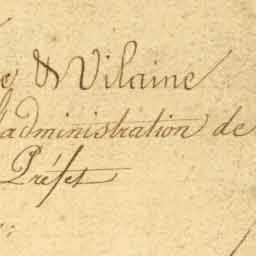 e & Vilaine
l'administration de
Préfet